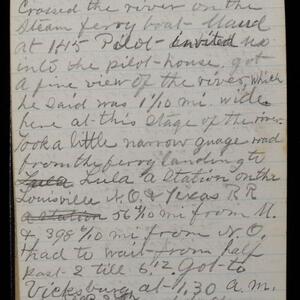 Crossed the river on the
Steam ferry boat - Maud
at 1.45 Pilot - invited us
into the pilot-house, got
a fine view of the river, which
he said was 1 1/10 mi. wide
here at this stage of the river.
Took a little narrow guage road
from the ferry landing to
Lula Lula a Station on the
Louisville N.O. & Texas R R
a Station 56 4/10 mi from M.
& 398 6/10 mi from N.O.
had to wait from half
past 2 till 6 1/2. Got to
Vicksburg at 1.30 a.m.